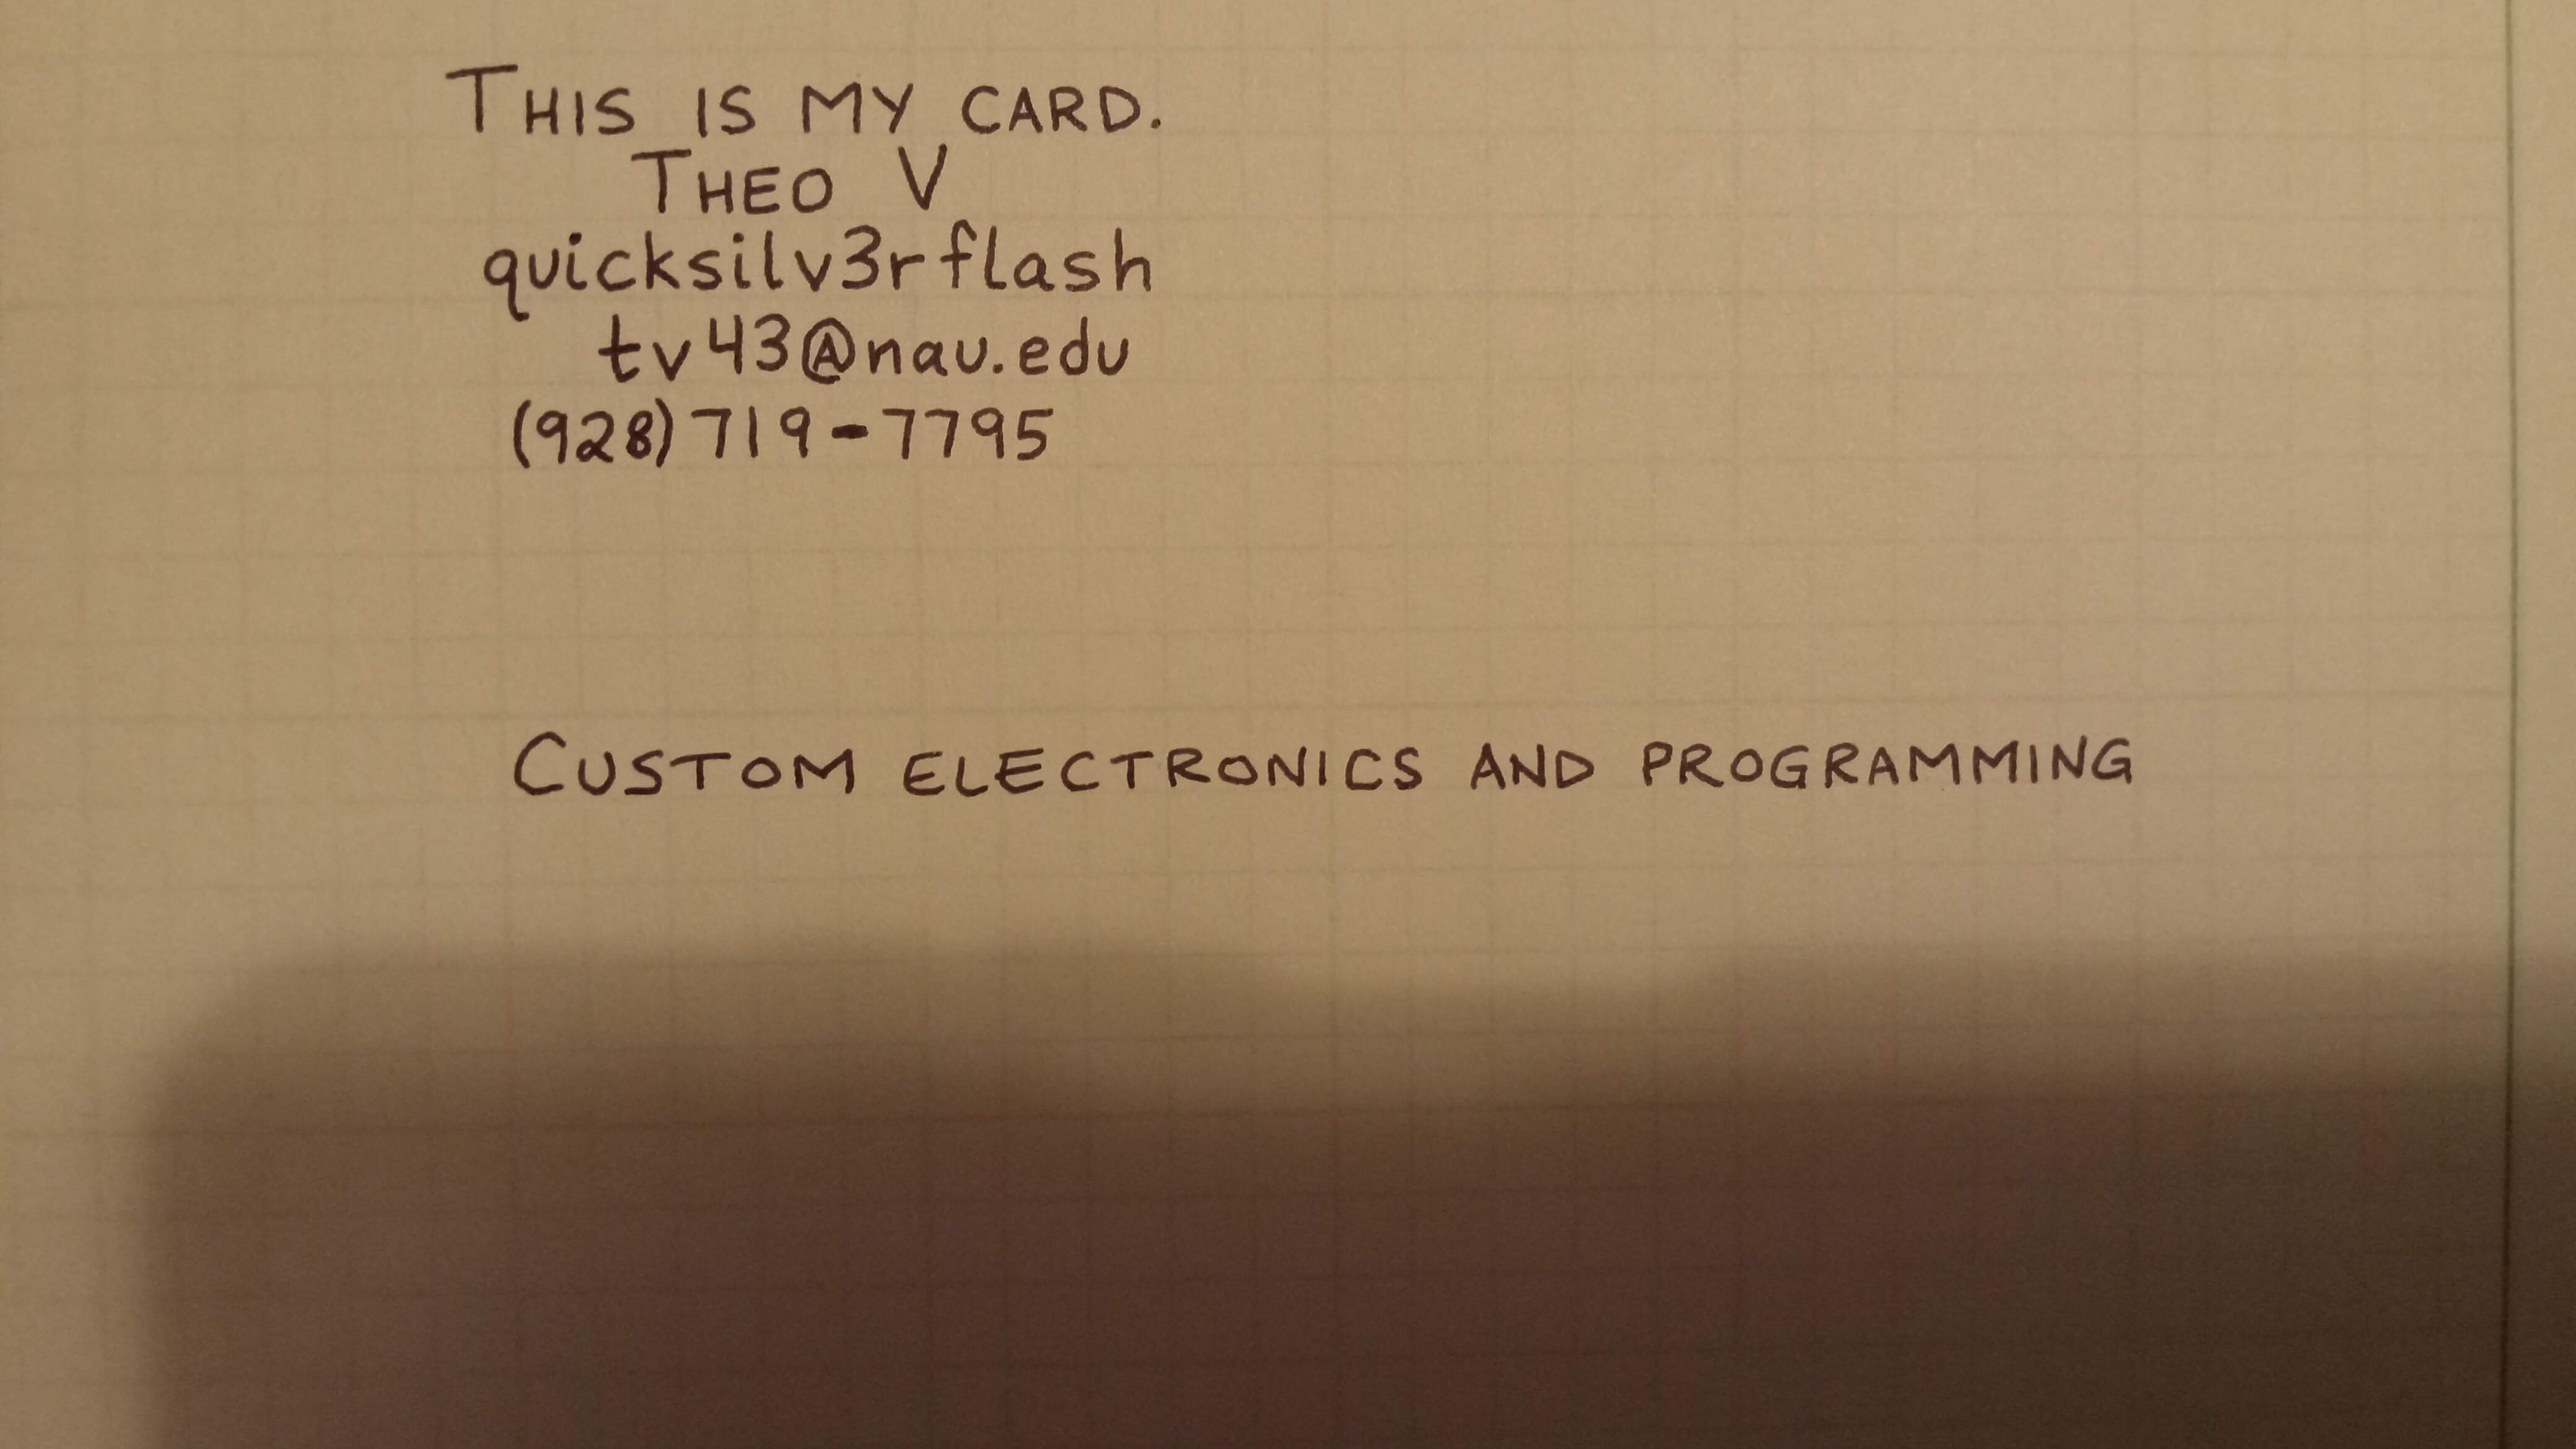 THIS IS MY CARD.
THEO V
quicksilv3rflash
tv43@nau.edu
(928)719-7795
CUSTOM ELECTRONICS AND PROGRAMMING